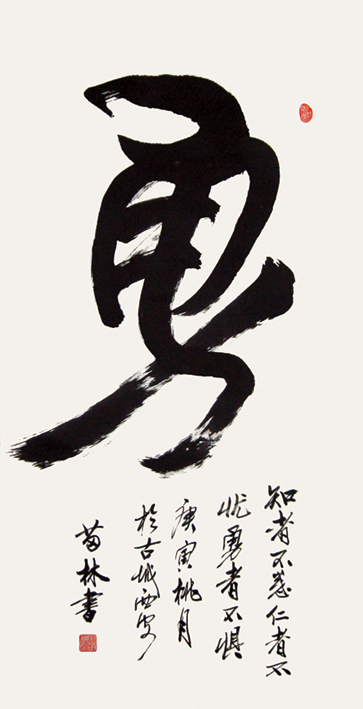 勇
知者不惑仁者不
忧勇者不惧
庚寅桃月
於古城西安
林書